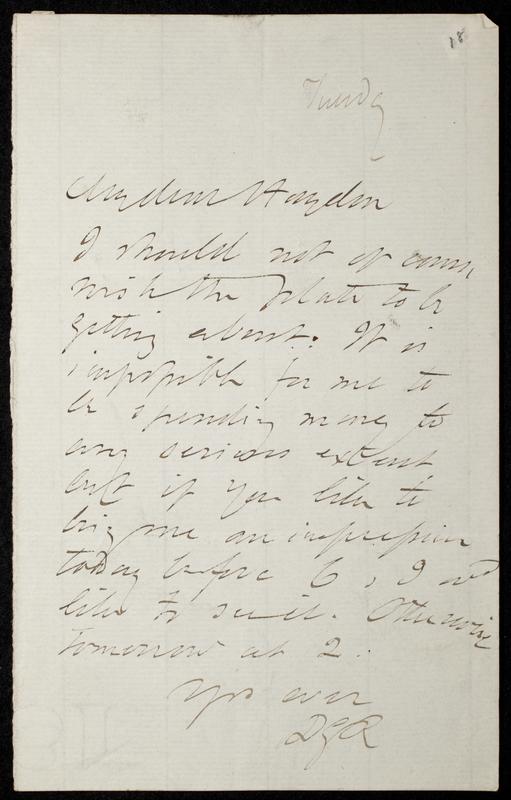 18
Tuesday
My dear Haydon
I should not of course
wish the plate to be
getting about. It is
impossible for me to
be spending money to
any serious extent
but if you like to
bring me an impression
today before 6, I wd
like to see it. Otherwise
tomorrow at 2.
Yrs ever
DGR